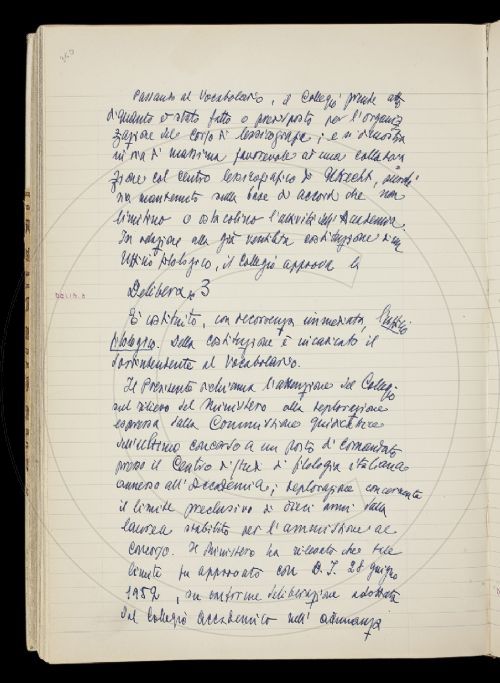 363
Passando al Vocabolario, il Collegio prende atto
di quanto è stato fatto o predisposto per l'organiz-
zazione del Corpo di lessicografi; e si dimostra
in via di massima favorevole ad una collabora-
zione col centro lessicografico di Utrecht, purché
sia mantenuta sulla base di accordi che non
limitino o ostacolino l'attività dell'Accademia.
In relazione alla già ventilata costituzione di un
Ufficio filologico, il Collegio approva la
Delibera n. 3
È costituito, con decorrenza immediata, l'Ufficio
filologico. Della costituzione è incaricato il
Sovrintendente al Vocabolario.
Il Presidente richiama l'attenzione del Collegio
sul rilievo del Ministero alla deplorazione
espressa dalla Commissione giudicatrice
dell'ultimo concorso a un posto di comandato
presso il Centro di studi di filologia italiana
annesso all'Accademia; deplorazione concernente
il limite preclusivo di dieci anni dalla
laurea stabilito per l'ammissione al
concorso. Il Ministero ha rilevato che tale
limite fu approvato con D. I. 28 giugno
1952, su conforme deliberazione adottata
dal Collegio Accademico nell'adunanza